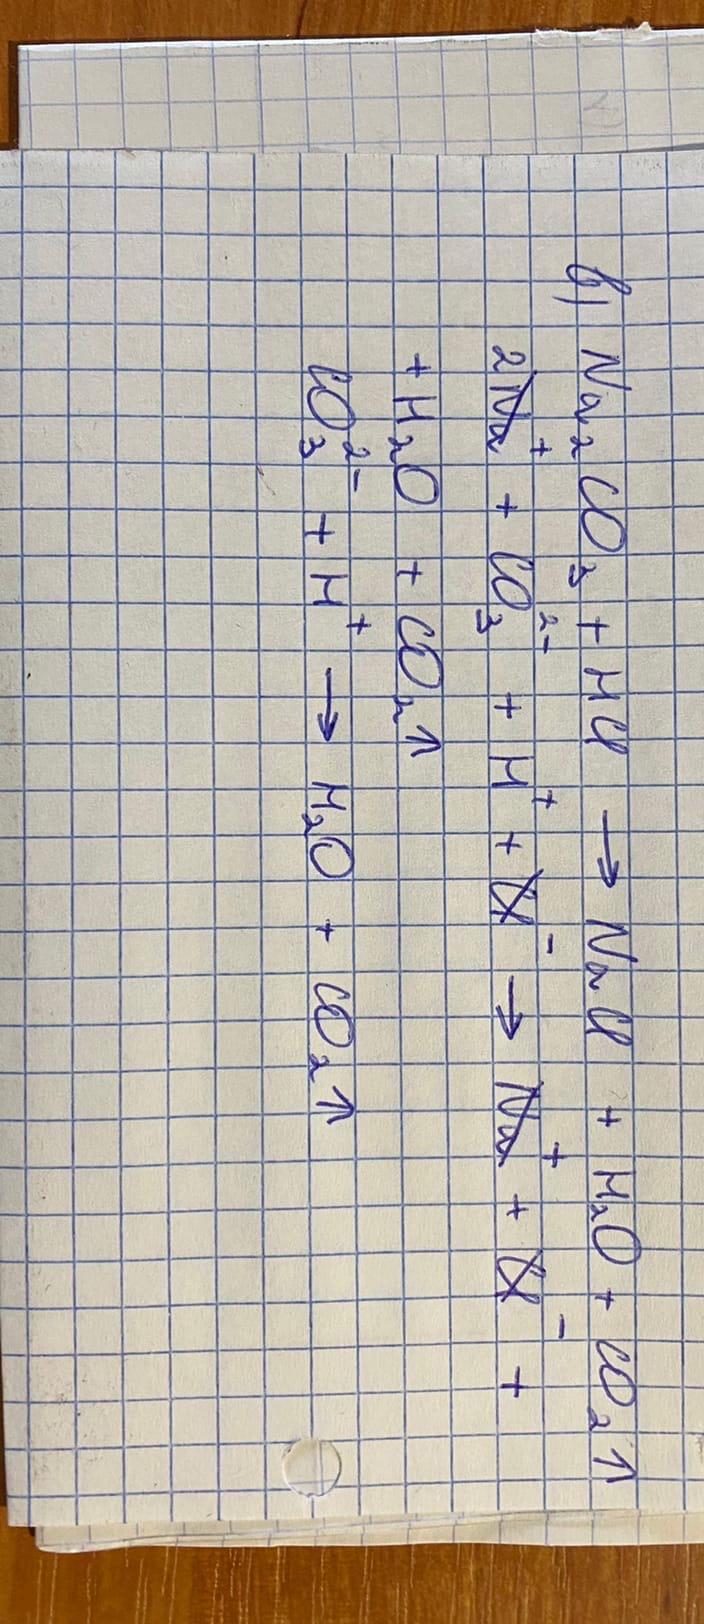 в) Na₂CO₃ + HCl → NaCl + H₂O + CO₂↑
2Na⁺ + CO₃²⁻ + H⁺ + Cl⁻ → Na⁺ + Cl⁻ +
+ H₂O + CO₂↑
CO₃²⁻ + H⁺ → H₂O + CO₂↑